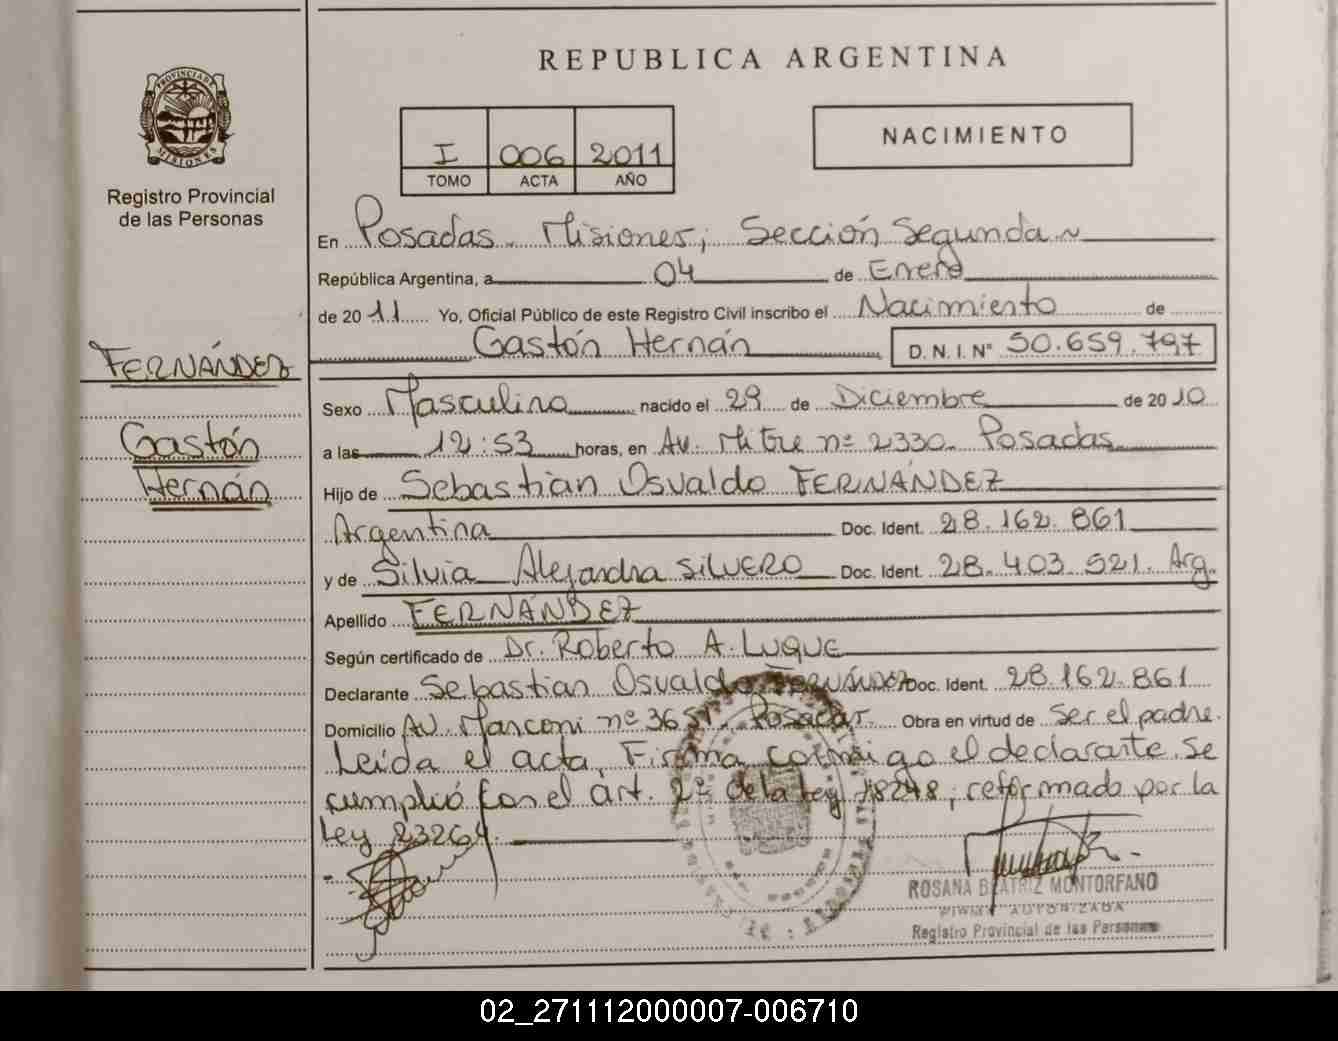 REPUBLICA ARGENTINA
PROVINCIA DE
MISIONES
Registro Provincial
de las Personas
I 006 2011
TOMO ACTA AÑO
NACIMIENTO
En Posadas - Misiones; Sección Segunda
República Argentina, a 04 de Enero
de 2011 Yo, Oficial Público de este Registro Civil inscribo el Nacimiento de
Gastón Hernán D.N.I. Nº 50.659.797
FERNÁNDEZ
Gastón
Hernán
Sexo Masculino nacido el 29 de Diciembre de 2010
a las 12:53 horas, en Av. Mitre nº 2330 - Posadas
Hijo de Sebastian Osvaldo FERNÁNDEZ
Argentina Doc. Ident. 28.162.861
y de Silvia Alejandra SILVERO Doc. Ident. 28.403.521. Arg.
Apellido FERNÁNDEZ
Según certificado de Dr. Roberto A. LUQUE
Declarante Sebastian Osvaldo FERNÁNDEZ Doc. Ident. 28.162.861
Domicilio AV. Marconi nº 365 Posadas. Obra en virtud de ser el padre.
Leída el acta, Firma conmigo el declarante. Se
cumplió con el art. 2º de la Ley 18248, reformado por la
Ley 23264.
ROSANA BEATRIZ MONTORFANO
FIRMA AUTORIZADA
Registro Provincial de las Personas
02_271112000007-006710